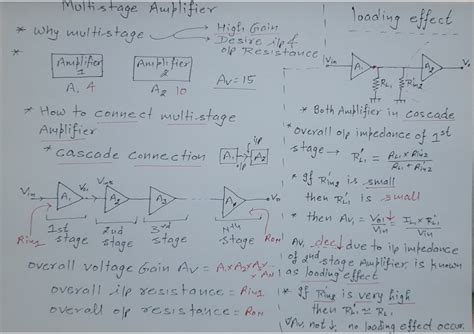 Multistage Amplifier
* Why multistage
High Gain
Desire i/p & o/p Resistance
Amplifier 1
Amplifier 2
A1 4
A2 10
Av = 15
* How to connect multistage
Amplifier
* cascade connection
o/p
i/p
A1
A2
Vin
Vo1
A1
A2
A3
Vo
Rin1
1st stage
2nd stage
3rd stage
Nth stage
overall voltage Gain Av = A1 x A2 x A3
overall i/p resistance = Rin1
overall o/p resistance = Ron
loading effect
Vin
A1
A2
Vo
RL1
Rin2
* Both Amplifier in cascade
* overall o/p impedance of 1st
stage → R'L1 = RL1 x Rin2 / RL1 + Rin2
* If Rin2 is small
then R'L1 is small
* then Av1 = Vo1↓ / Vin = IL1 x R'L1 / Vin
Av1 dec↓ due to i/p impedance
of 2nd stage Amplifier is known
as loading effect
* If Rin2 is very high
then R'L1 ≃ RL1
Av1 not ↓, no loading effect occur.